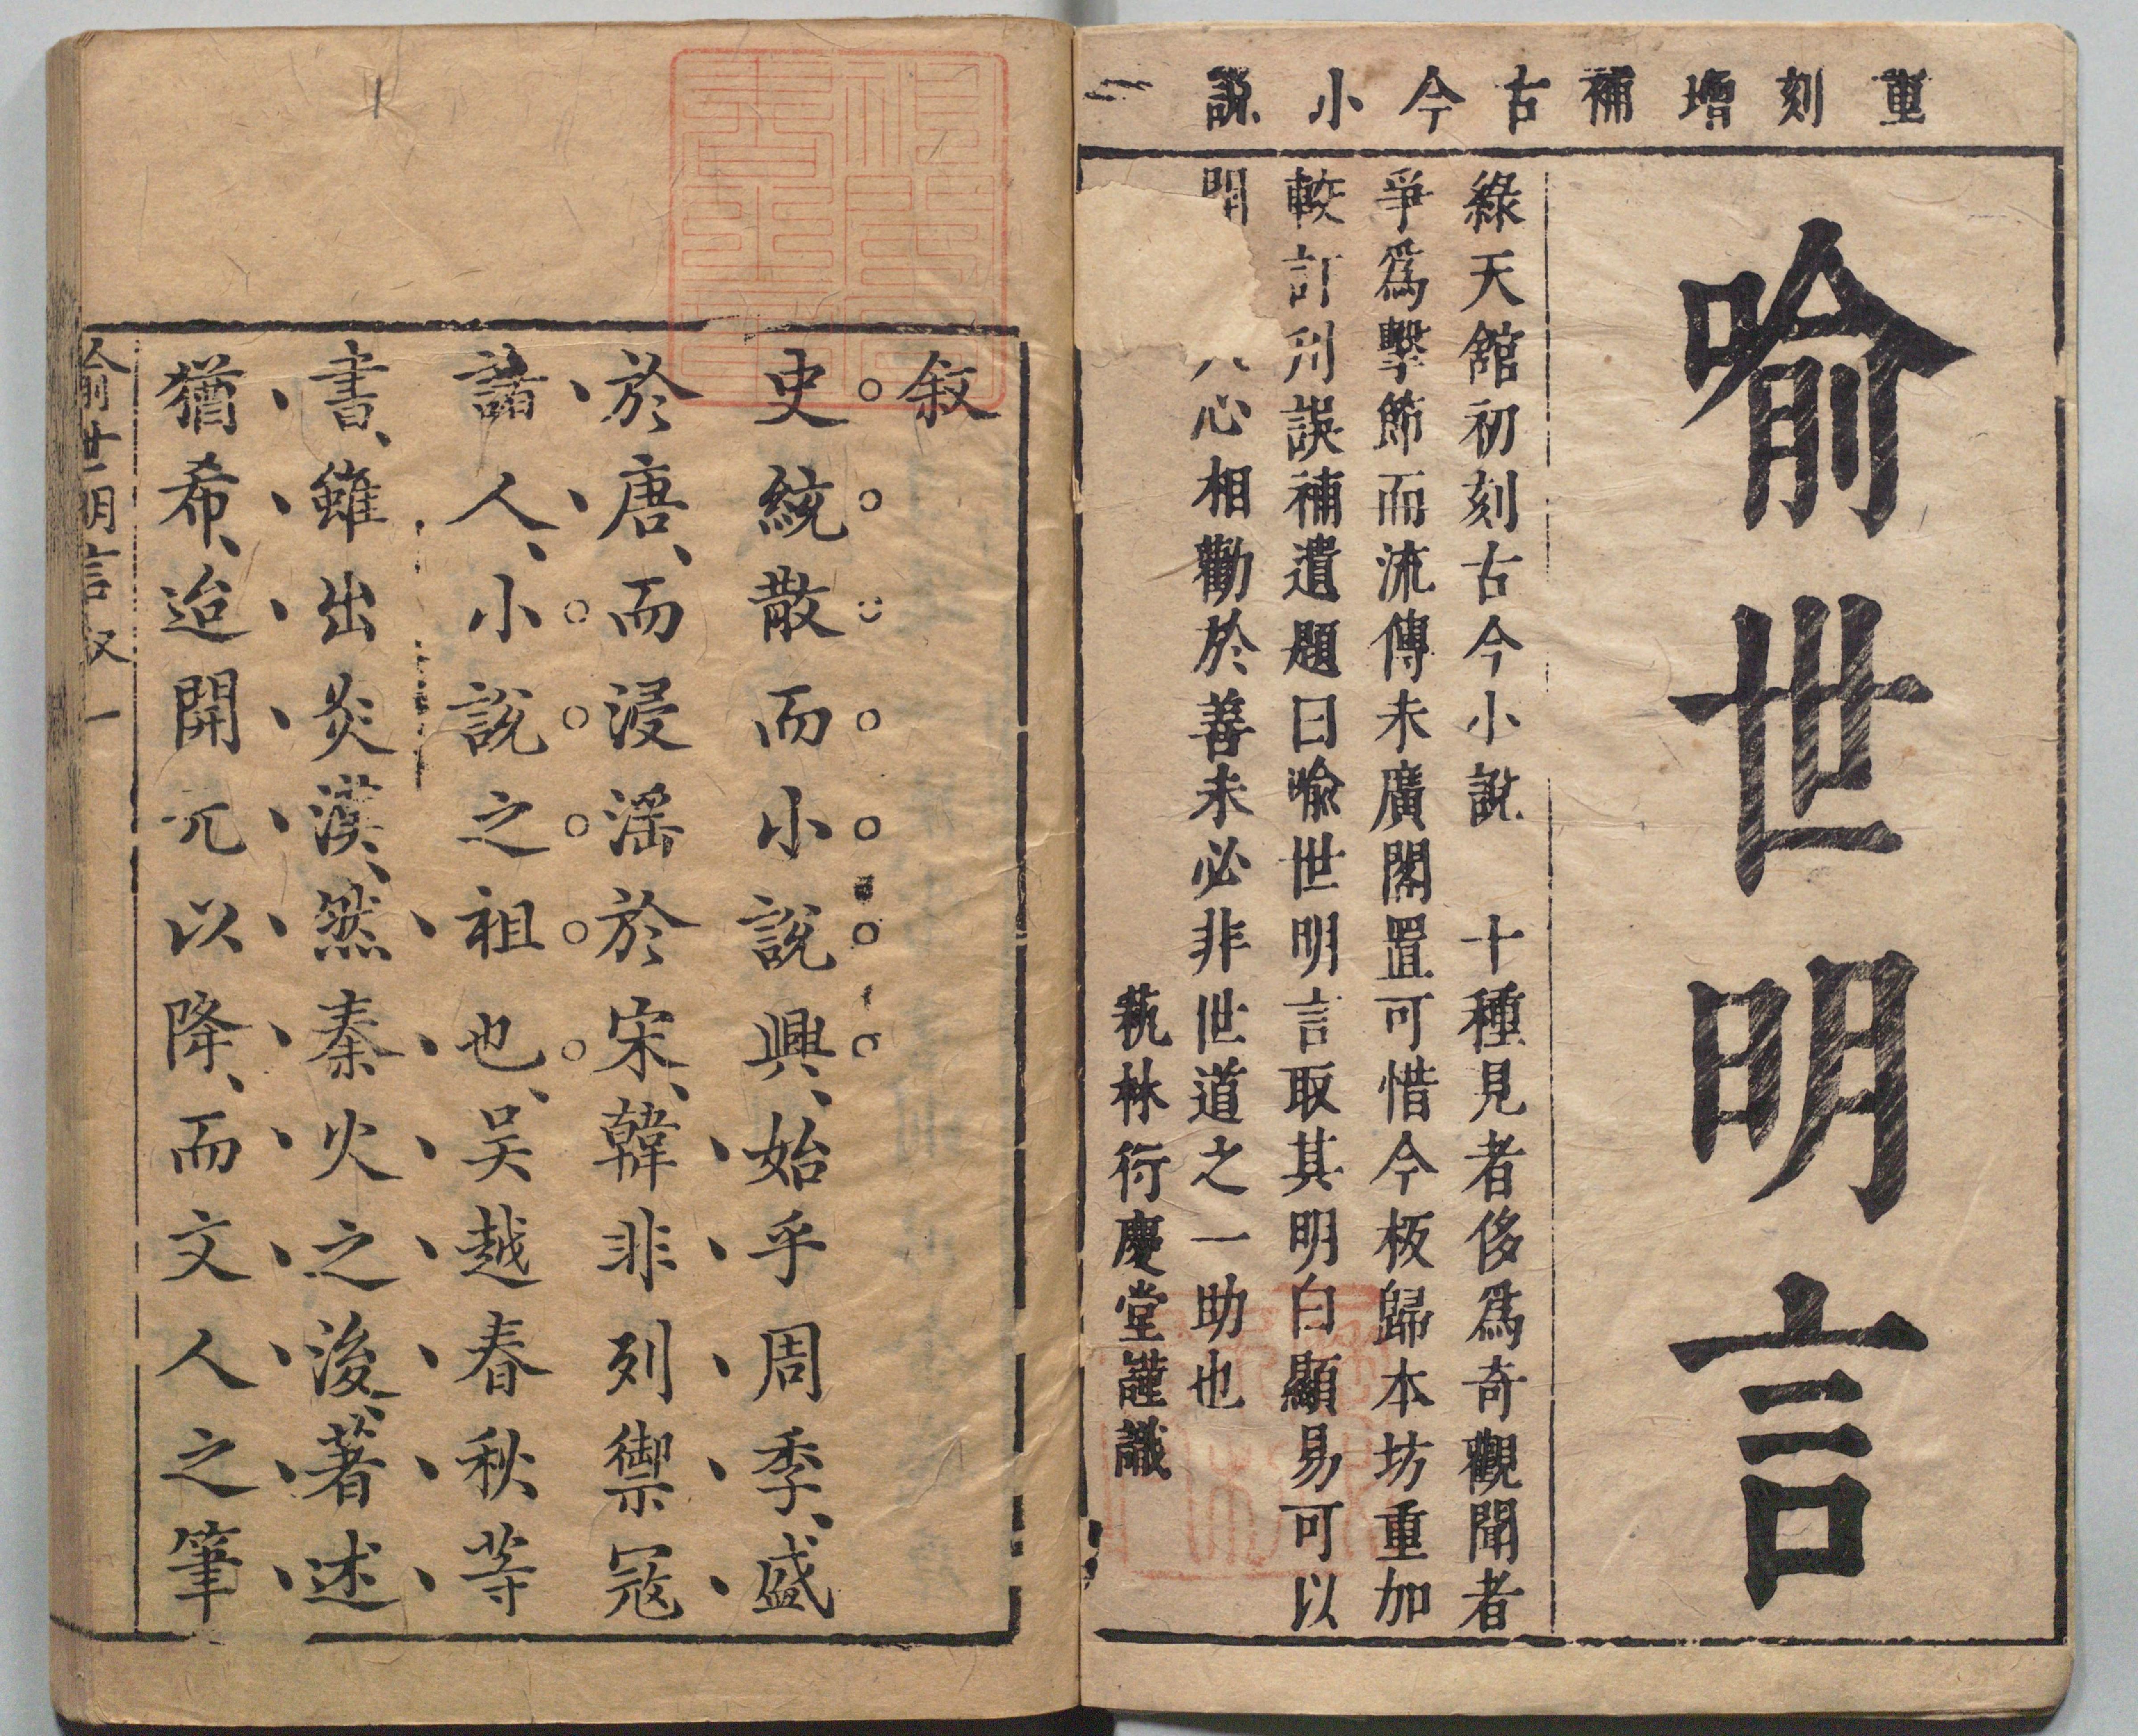 重刻增補古今小說一
喻世明言
綠天舘初刻古今小說 十種見者侈爲奇觀聞者
爭爲擊節而流傳未廣閣置可惜今板歸本坊重加
較訂刋誤補遺題曰喻世明言取其明白顯易可以
明 人心相勸於善未必非世道之一助也
蓺林衍慶堂謹識
叙
史統散而小說興、始乎周季、盛
於唐、而浸淫於宋、韓非列禦寇
諸人、小說之祖也、吴越春秋等
書、雖出炎漢、然秦火之後、著述
猶希、迨開元以降、而文人之筆
喻世明言 叙 一